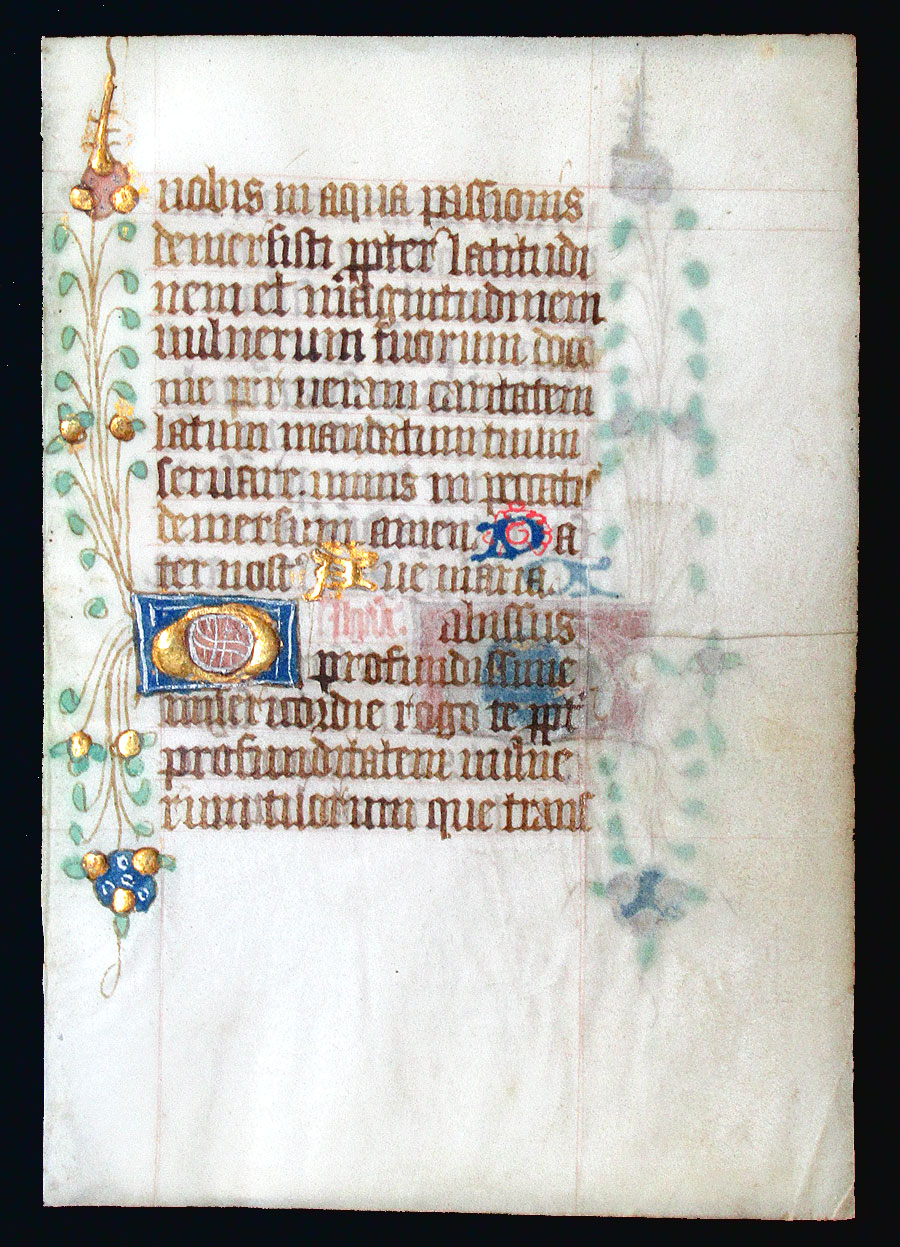 nobis in aqua passionis
demersisti ppter latitudi
nem et magnitudinem
uulnerum tuorum doce
me per ueram caritatem
latum mandatum tuum
seruare. nimis in peccatis
demersum amen. Pa
ter nost Aue maria.
O Ihesu. abissus
profundissime
misericordie rogo te ppt
profunditatem uulne
rum tuorum que trans